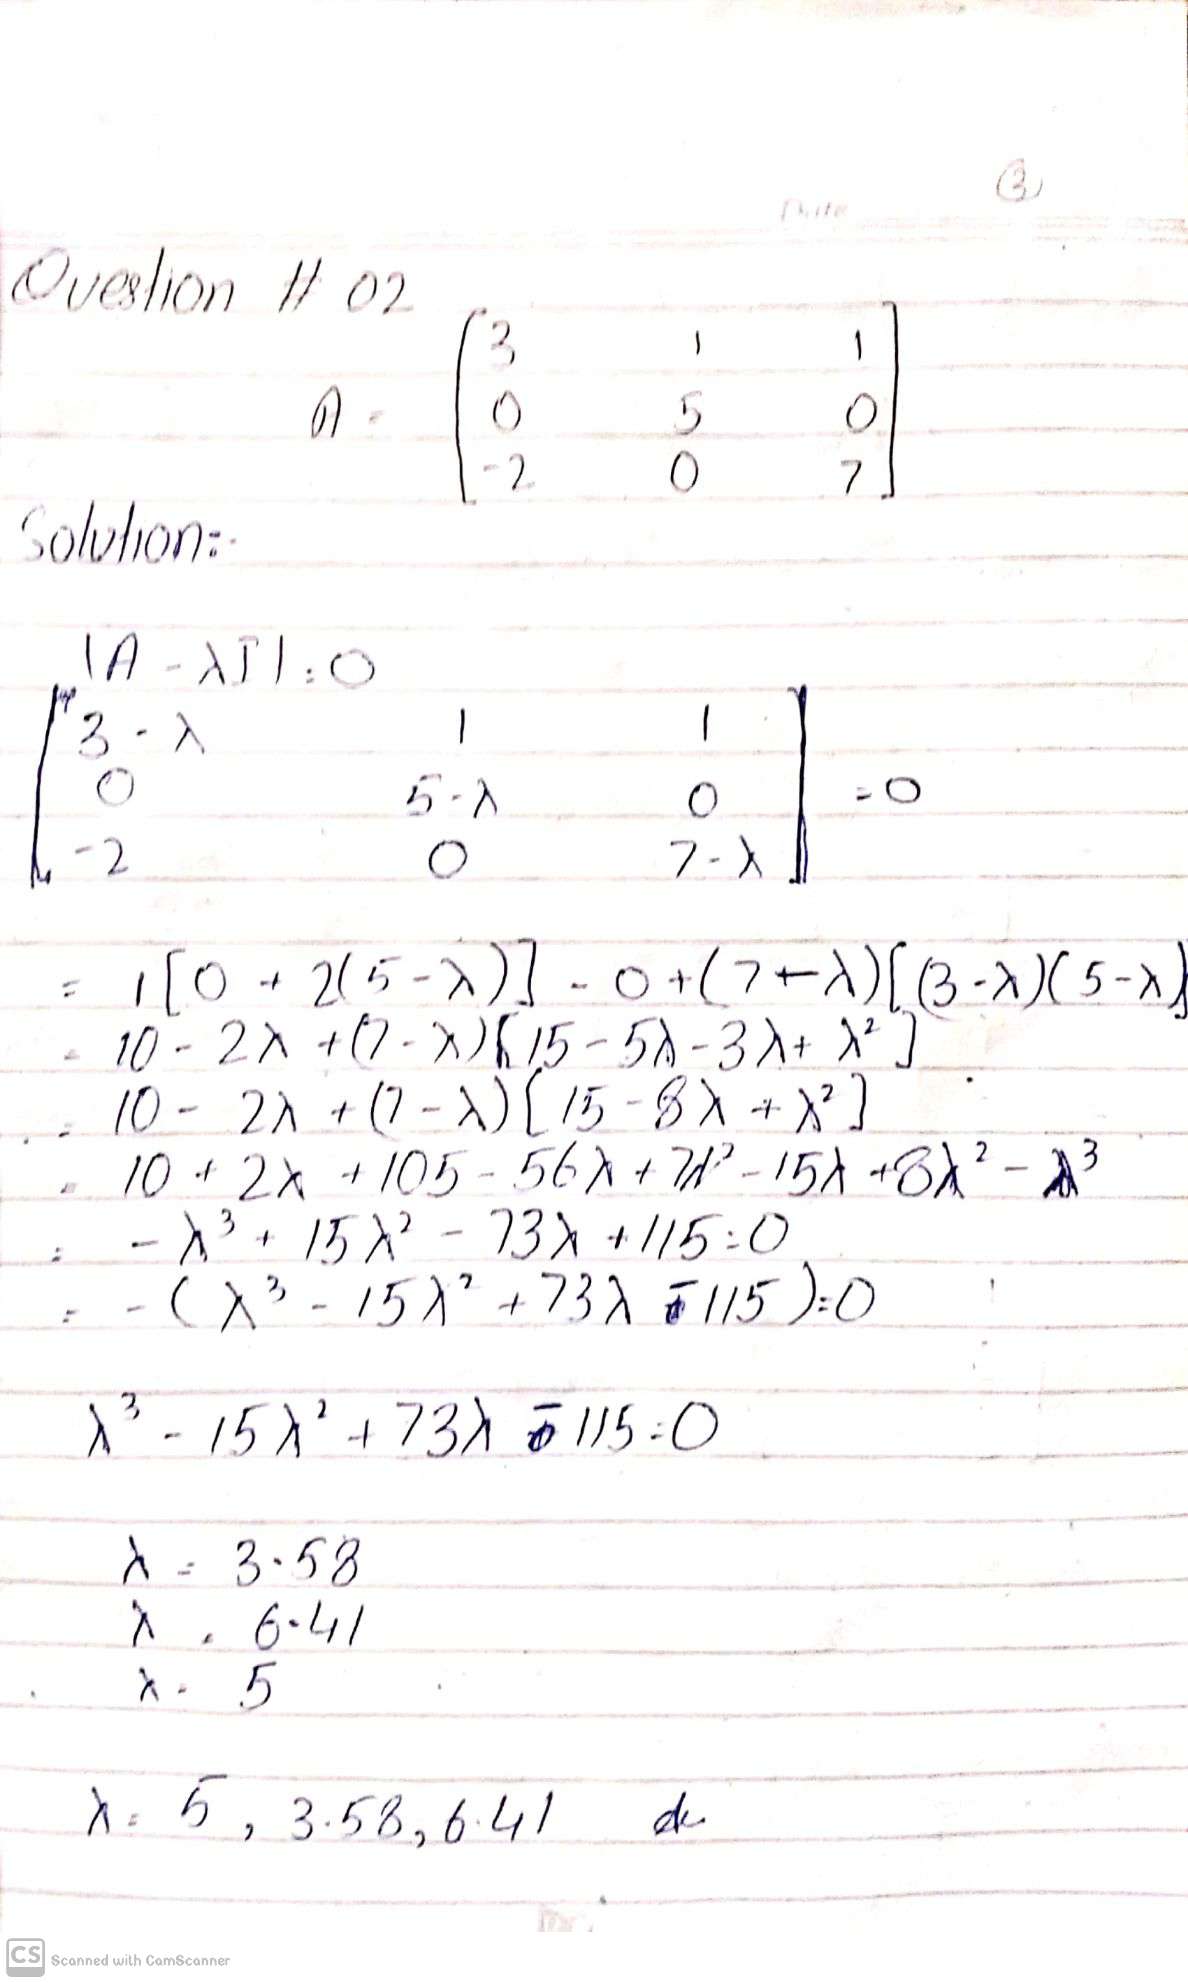 3
Date
Question # 02
A = [3 1 1
0 5 0
-2 0 7]
Solution:-
|A - λI| = 0
|3 - λ 1 1
0 5-λ 0 = 0
-2 0 7-λ|
= 1[0 + 2(5-λ)] - 0 + (7-λ)[(3-λ)(5-λ)]
= 10 - 2λ + (7-λ)[15-5λ-3λ+λ²]
= 10 - 2λ + (7-λ)[15-8λ+λ²]
= 10 + 2λ + 105 - 56λ + 7λ² - 15λ + 8λ² - λ³
= - λ³ + 15λ² - 73λ + 115 = 0
= - (λ³ - 15λ² + 73λ - 115) = 0
λ³ - 15λ² + 73λ - 115 = 0
λ = 3.58
λ = 6.41
λ = 5
λ = 5, 3.58, 6.41
CS Scanned with CamScanner